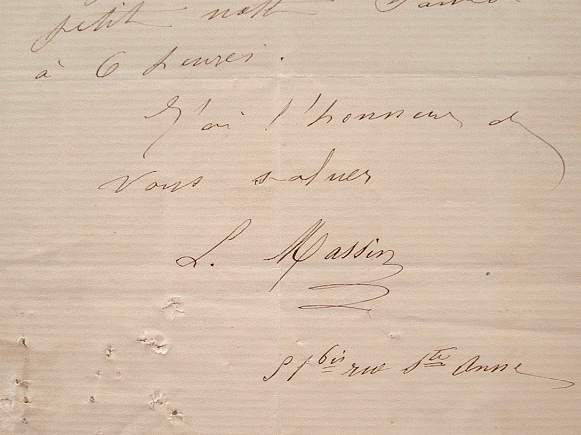 petit mot
à 6 heures.
J'ai l'honneur de
vous saluer
L. Massin
51 bis rue Ste Anne